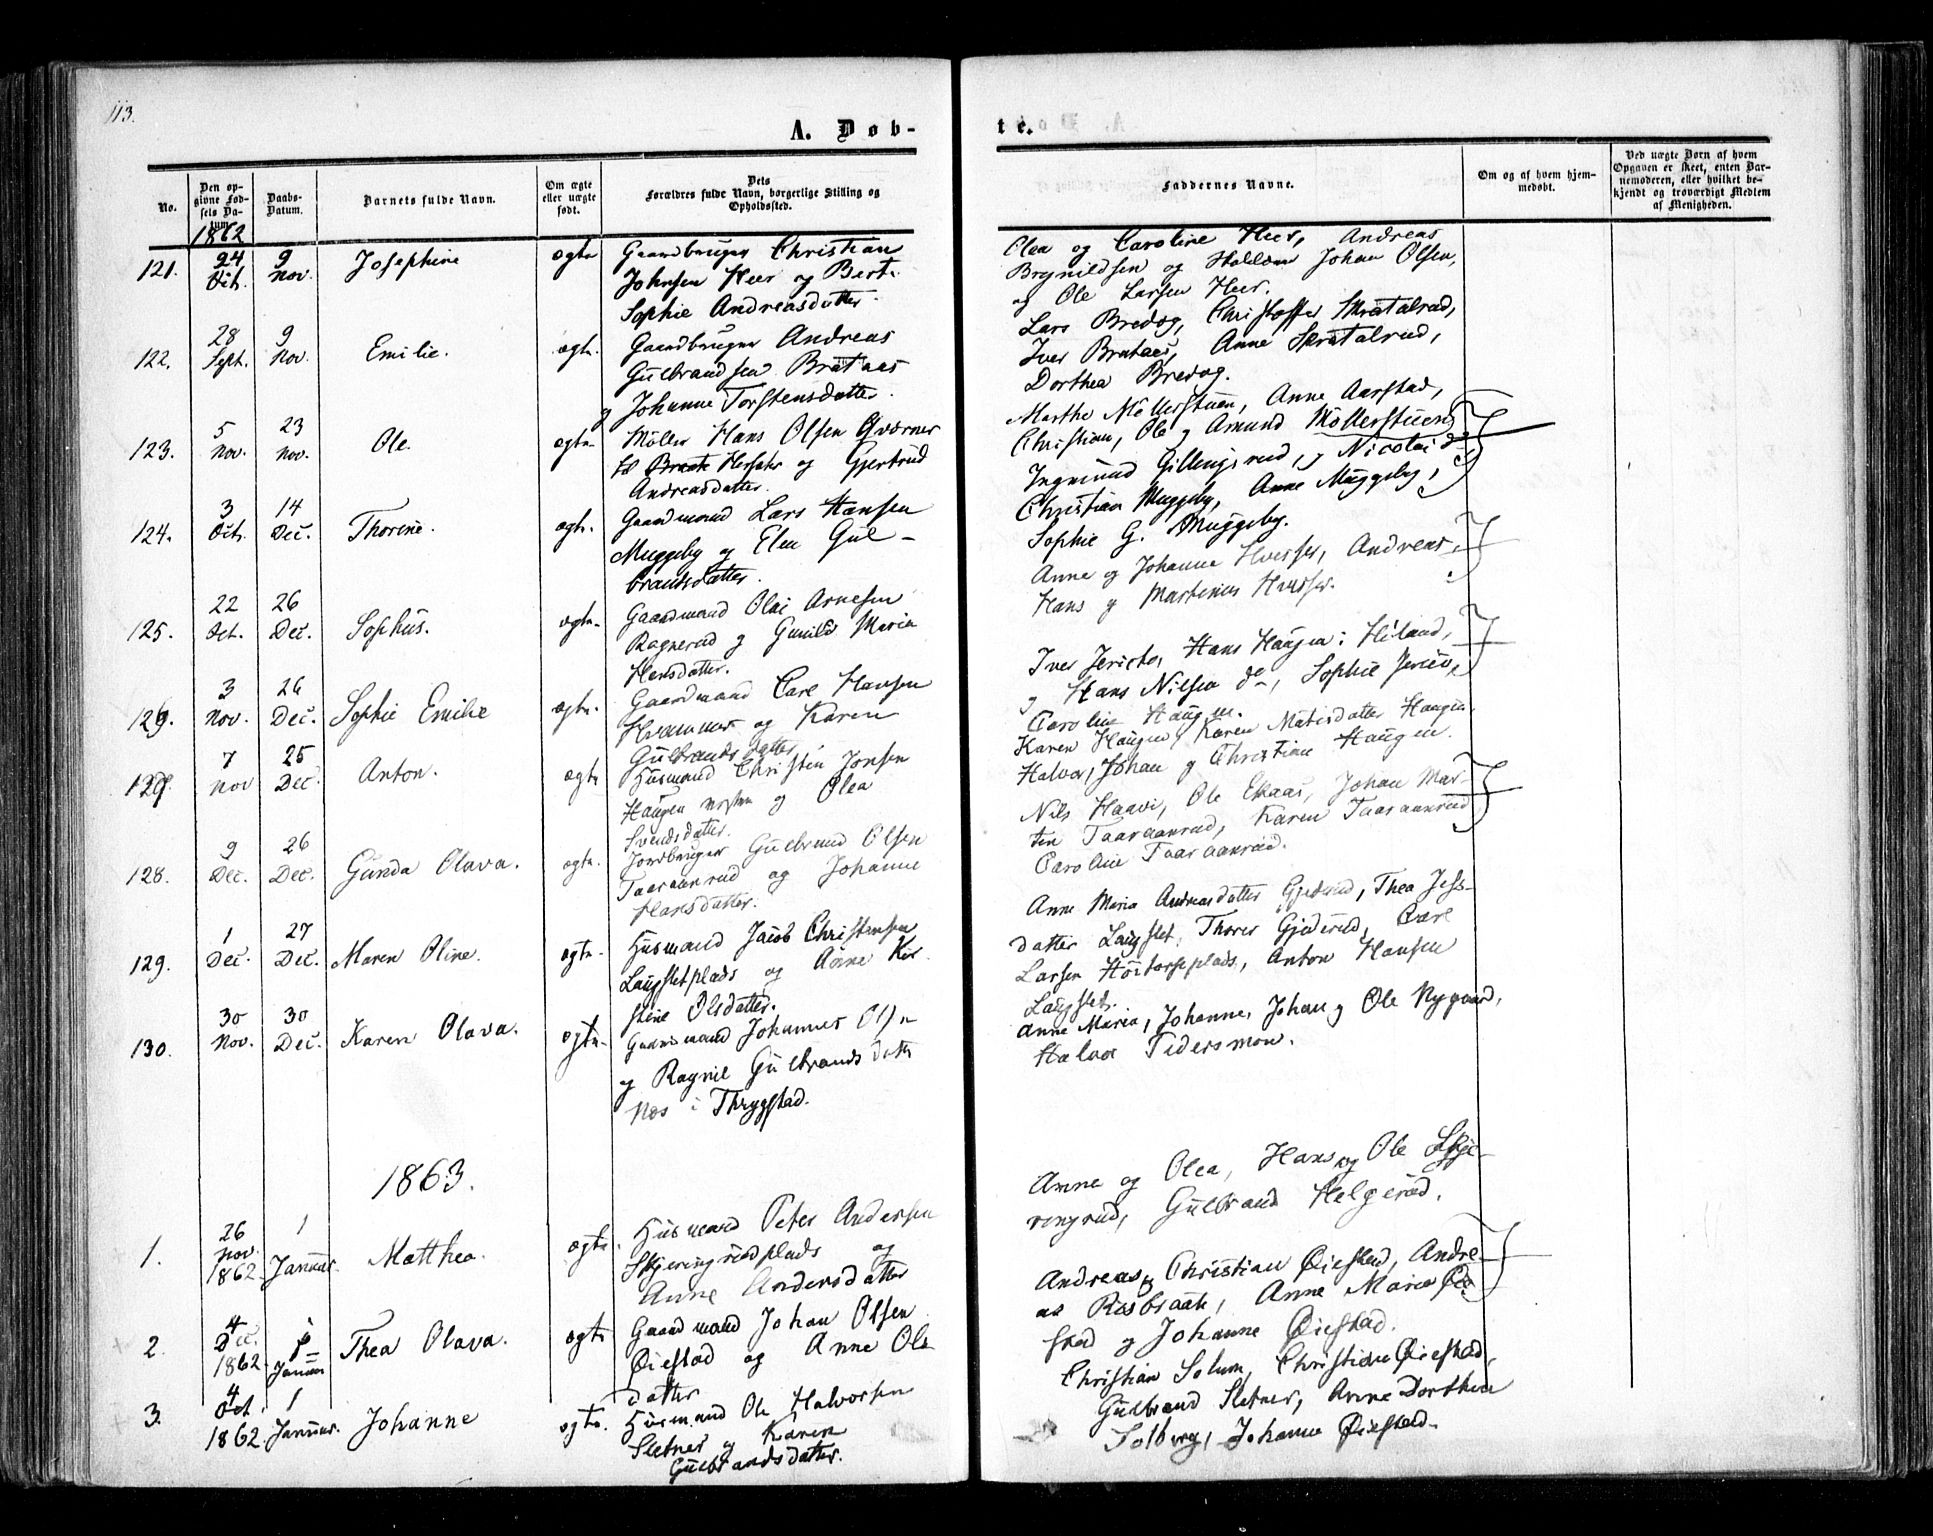 113.
A. Døb-
te.
No.
Den opgivne Fødsels Datum.
Daabs-Datum.
Barnets fulde Navn.
Om ægte eller uægte født.
Dets Forældres fulde Navn, borgerlige Stilling og Opholdssted.
Faddernes Navne.
Om og af hvem hjemmedøbt.
Ved uægte Børn af hvem Opgaven er skeet, enten Barnemoderen, eller hvilket bekjendt og troværdigt Medlem af Menigheden.
1862
121. 24 Oct. 9 Nov. Josephine ægte Gaardbruger Christian
Johnsen Heer og Berte
Sophie Andreasdatter.
Olea og Caroline Heer, Andreas
Brynildsen og Johan Olsen,
og Ole Larsen Heer.
122. 28 Sept. 9 Nov. Emilie. ægte. Gaardbruger Andreas
Gulbrandsen Brataas
og Johanne Torstensdatter.
Lars Bredog, Christoffer Skratalrud,
Iver Brataas, Anne Skratalrud,
Dorthea Bredog.
123. 5 Nov. 23 Nov. Ole. ægte Möller Hans Olsen Qværner
og Gjertrud
Andreasdatter.
Marthe Möllerstuen, Anne Aarstad,
Christian, Ole og Amund Möllerstuen
124. 3 Oct. 14 Dec. Thorine. ægte. Gaardmand Lars Hansen
Muggeby og Elea Gul-
brandsdatter.
Ingmund Gillungsrud, og Nicolai do
Christian Muggeby, Anne Muggeby,
Sophie G. Muggeby.
125. 22 Oct. 26 Dec. Sophus. ægte. Gaardmand Olai Arnesen
Ragnerud og Gunild Maria
Hansdatter.
Anne og Johanne Huesser, Andreas,
Hans og Martinius Huesser.
126. 3 Nov. 26 Dec. Sophie Emilie ægte. Gaardmand Carl Hansen
og Karen
Gulbrandsdatter
Iver Jericho, Hans Haugen i Höland,
og Hans Nilsen do, Sophie
Caroline Haugen.
127. 7 Nov 25 Dec. Anton. ægte Husmand Christen Jonsen
Haugen og Olea
Svendsdatter.
Karen Haugen, Karen Matisdatter Haugen
Halvor, Johan og Christian Haugen.
128. 9 Dec. 26 Dec. Gunda Olava. ægte. Jordbruger Gulbrand Olsen
Taaraanrud og Johanne
Hansdatter.
Nils Haavi, Ole Ekaas, Johan Mar-
tin Taaraanrud, Karen Taaraanrud
Caroline Taaraanrud.
129. 1 Dec. 27 Dec. Maren Oline. ægte. Husmand Jacob Christensen
Laugsletplads og Anne Kir-
stine Olsdatter.
Anne Maria Andreasdatter Gjederud, Thea Jess-
datter Laugslet, Thorer Gjederud, Carl
Larsen Höitorpeplads, Anton Hansen
Laugslet.
130. 30 Nov. 30 Dec. Karen Olava. ægte. Gaardmand Johannes Olsen
og Ragnil Gulbrandsdatter
Nos i Thrygstad.
Anne Maria, Johanne, Johan og Ole Nygaard,
Halvor Tidersmon.
1863.
1. 26 Nov. 1862. 1 Januar. Matthea. ægte. Husmand Peter Andersen
Skjeringrudplads og
Anne Andersdatter
Anne og Olea, Hans og Ole Skje-
ringrud, Gulbrand Helgerud.
2. 4 Dec. 1862. 1 Januar Thea Olava. ægte Gaardmand Johan Olsen
Öiestad og Anne Ols-
datter
Andreas og Christian Öiestad, Andre-
as Rosbraate, Anne Marie Öie-
stad og Johanne Öiestad.
3. 4 Oct. 1862. 1 Januar. Johanne ægte. Husmand Ole Halvorsen
Sletner og Karen
Gulbrandsdatter.
Christian Solum, Christian Öiestad,
Gulbrand Sletner, Anne Dorthea
Solberg, Johanne Öiestad.